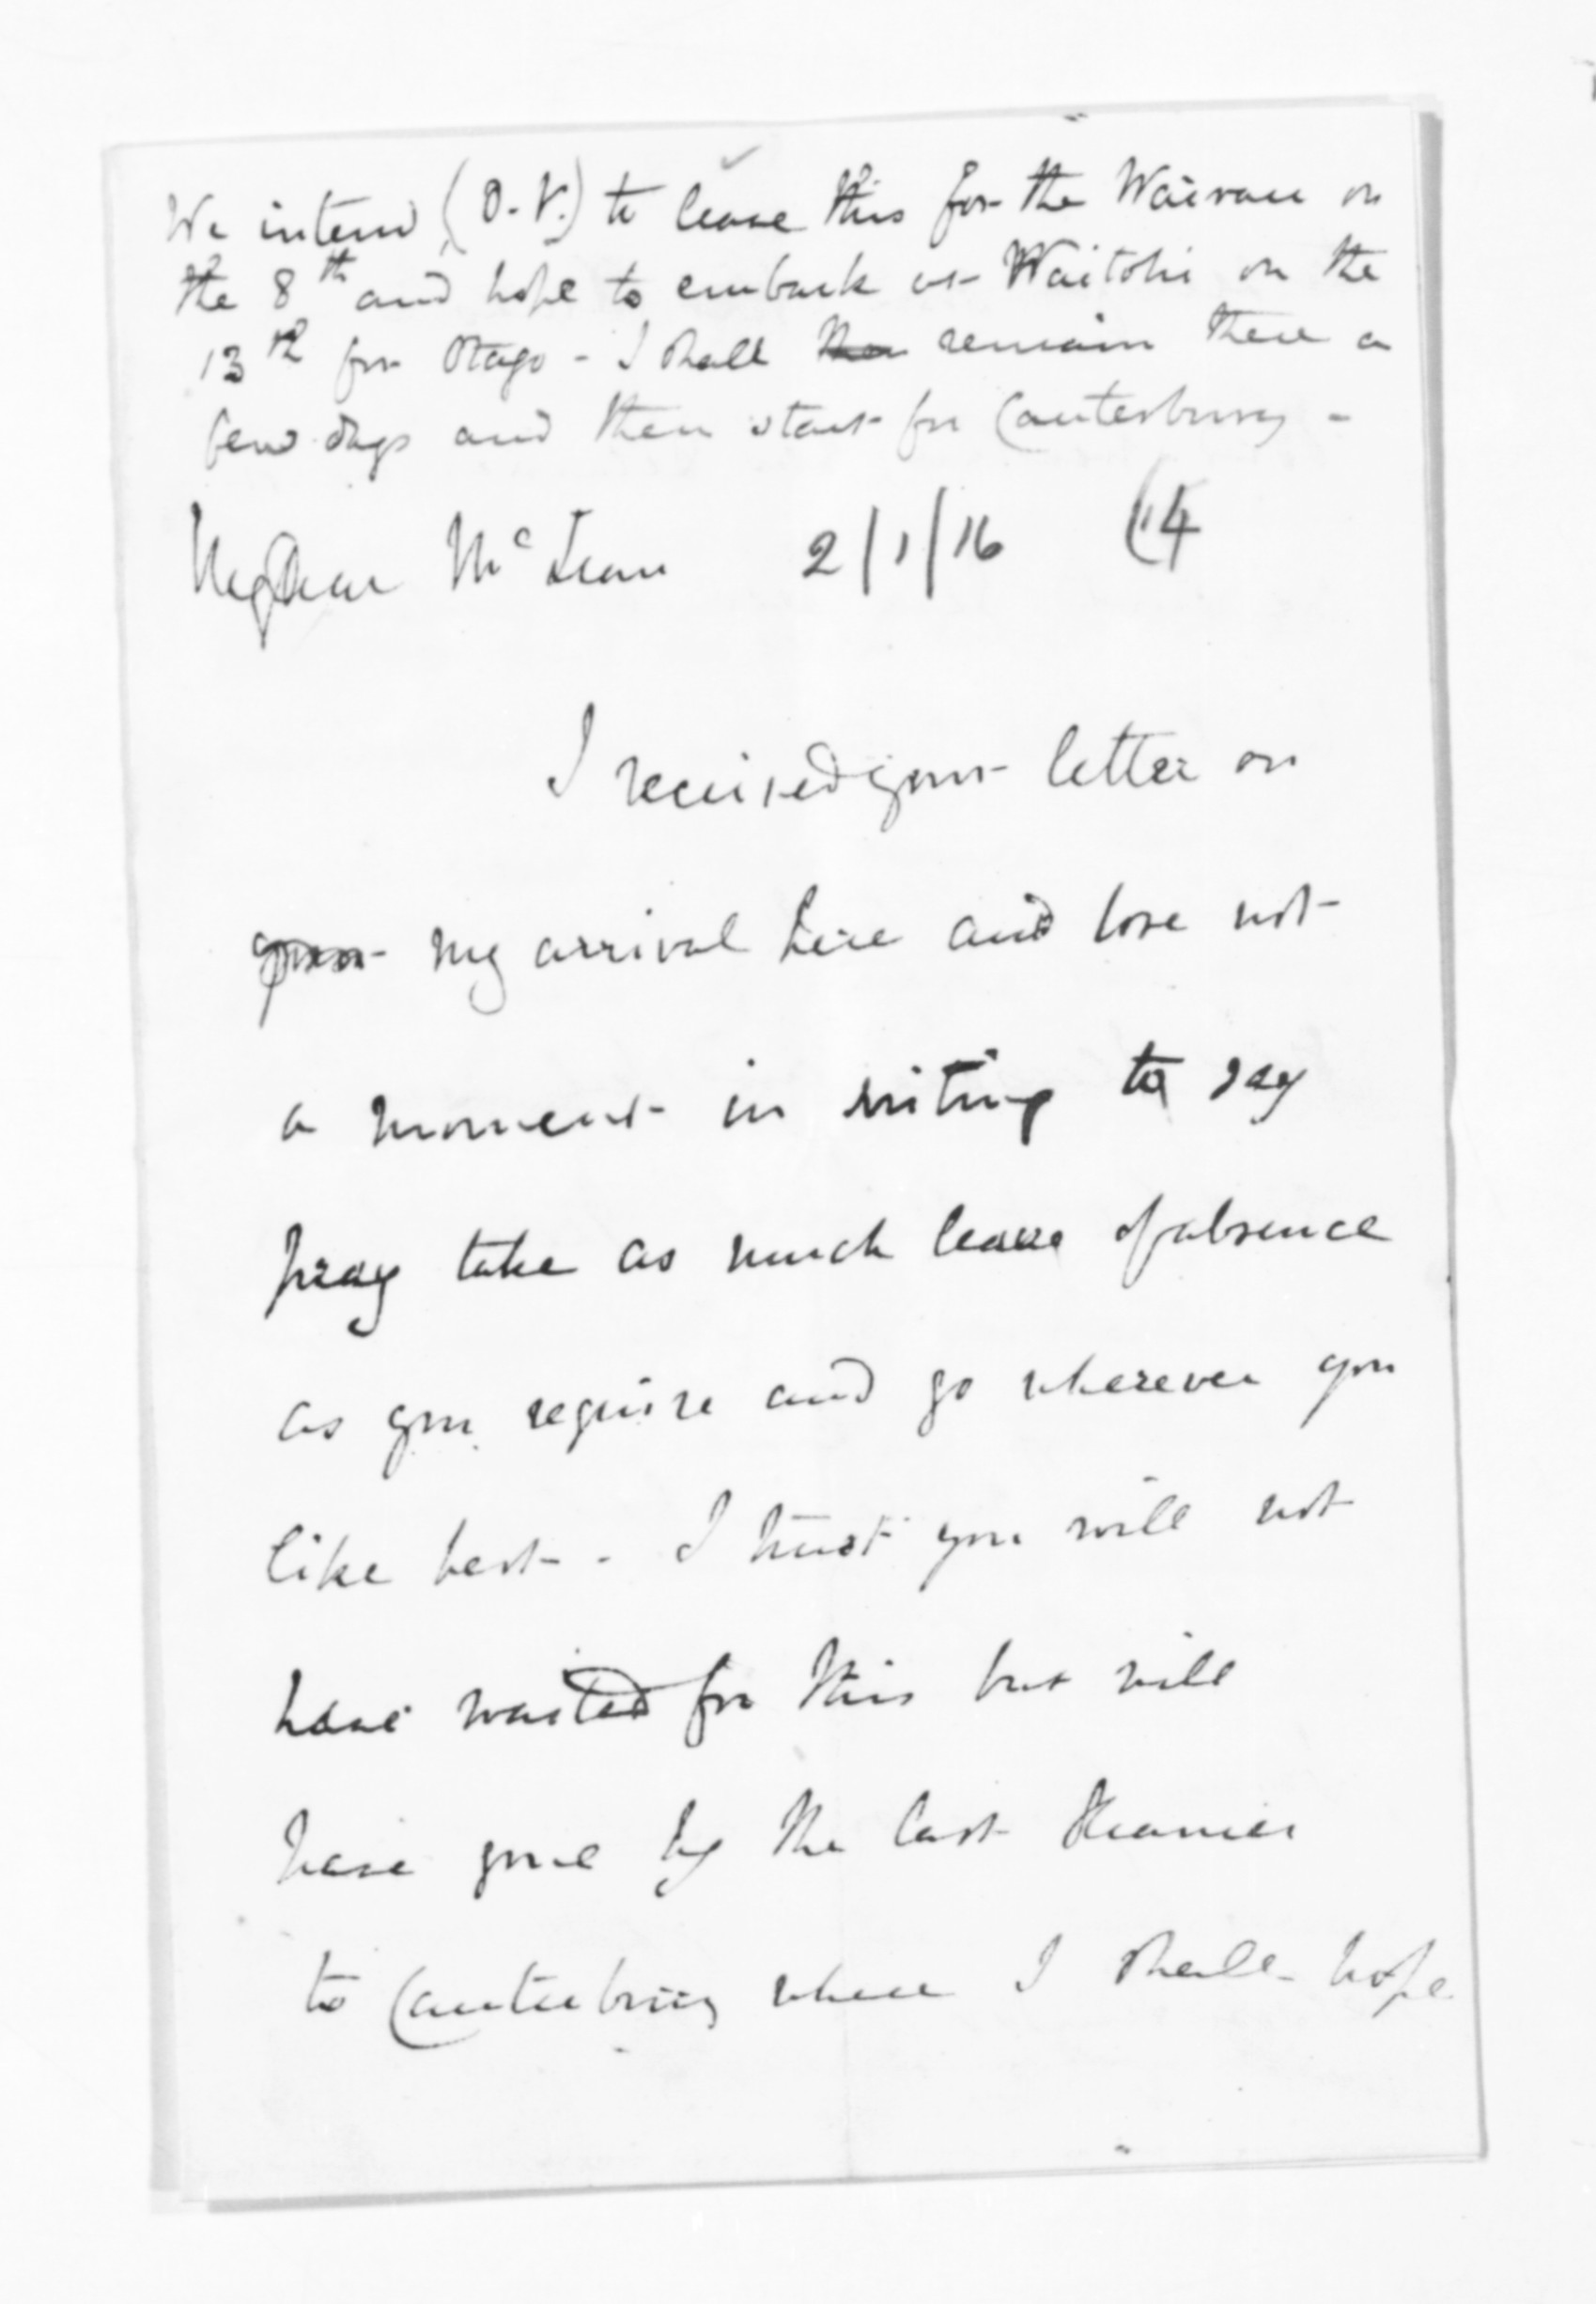 We intend (D.V.) to leave this for the Wairau on
the 8th and hope to embark at Waitohi on the
13th for Otago - I shall remain there a
few days and then start for Canterbury -
My dear McLean 2/1/16 (14
I received your letter on
my arrival here and lose not
a moment in writing to say
pray take as much leave of absence
as you require and go wherever you
like best - I trust you will not
have waited for this but will
have gone by the last steamer
to Canterbury where I shall hope